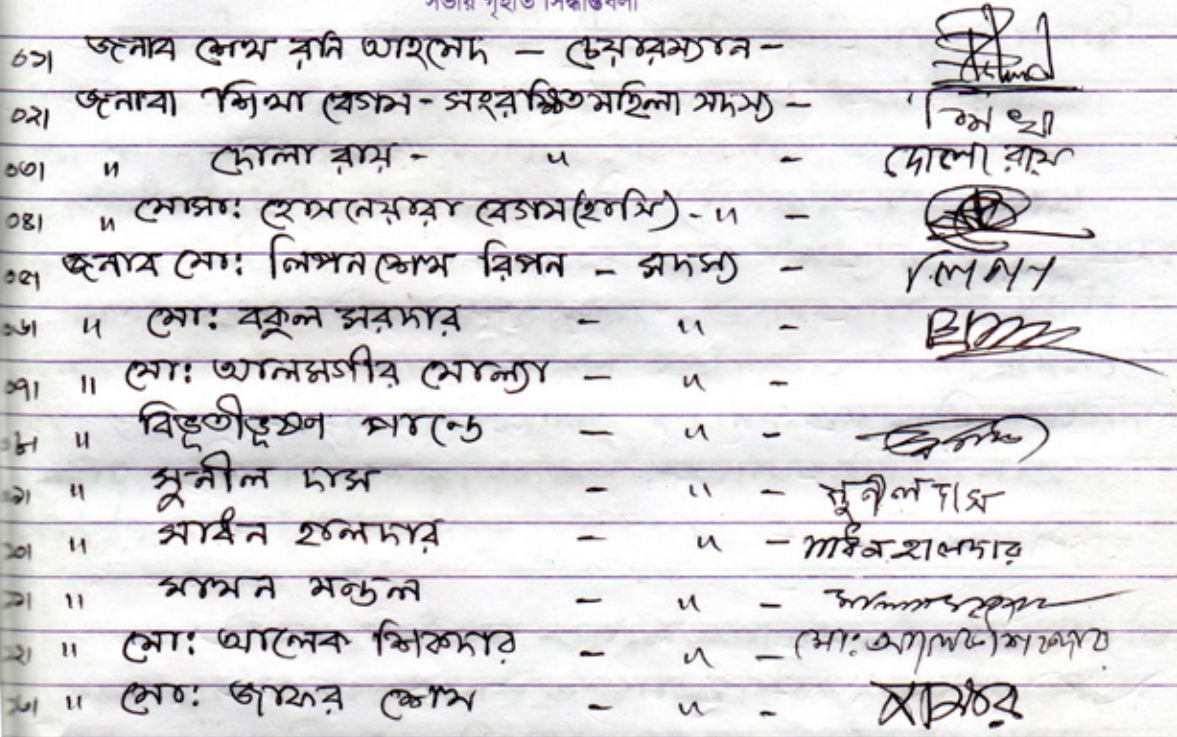 সভায় গৃহীত সিদ্ধান্তবলী
০১। জনাব শেখ রনি আহমেদ - চেয়ারম্যান -
০২। জনাবা শিখা বেগম - সংরক্ষিত মহিলা সদস্য - শিখা
০৩। " দোলা রায় - " - দোলা রায়
০৪। " মোসা: হোসনেয়ারা বেগম (হাসি) - " -
০৫। জনাব মো: লিপন শেখ রিপন - সদস্য - লিপন
০৬। " মো: বকুল সরদার - " -
০৭। " মো: আলমগীর মোল্যা - " -
০৮। " বিভূতীভূষণ পান্ডে - " -
০৯। " সুনীল দাস - " - সুনীল দাস
১০। " সাধন হালদার - " - সাধন হালদার
১১। " মাখন মন্ডল - " -
১২। " মো: আলেক শিকদার - " - মো: আলেক শিকদার
১৩। " মো: জাফর শেখ - " -